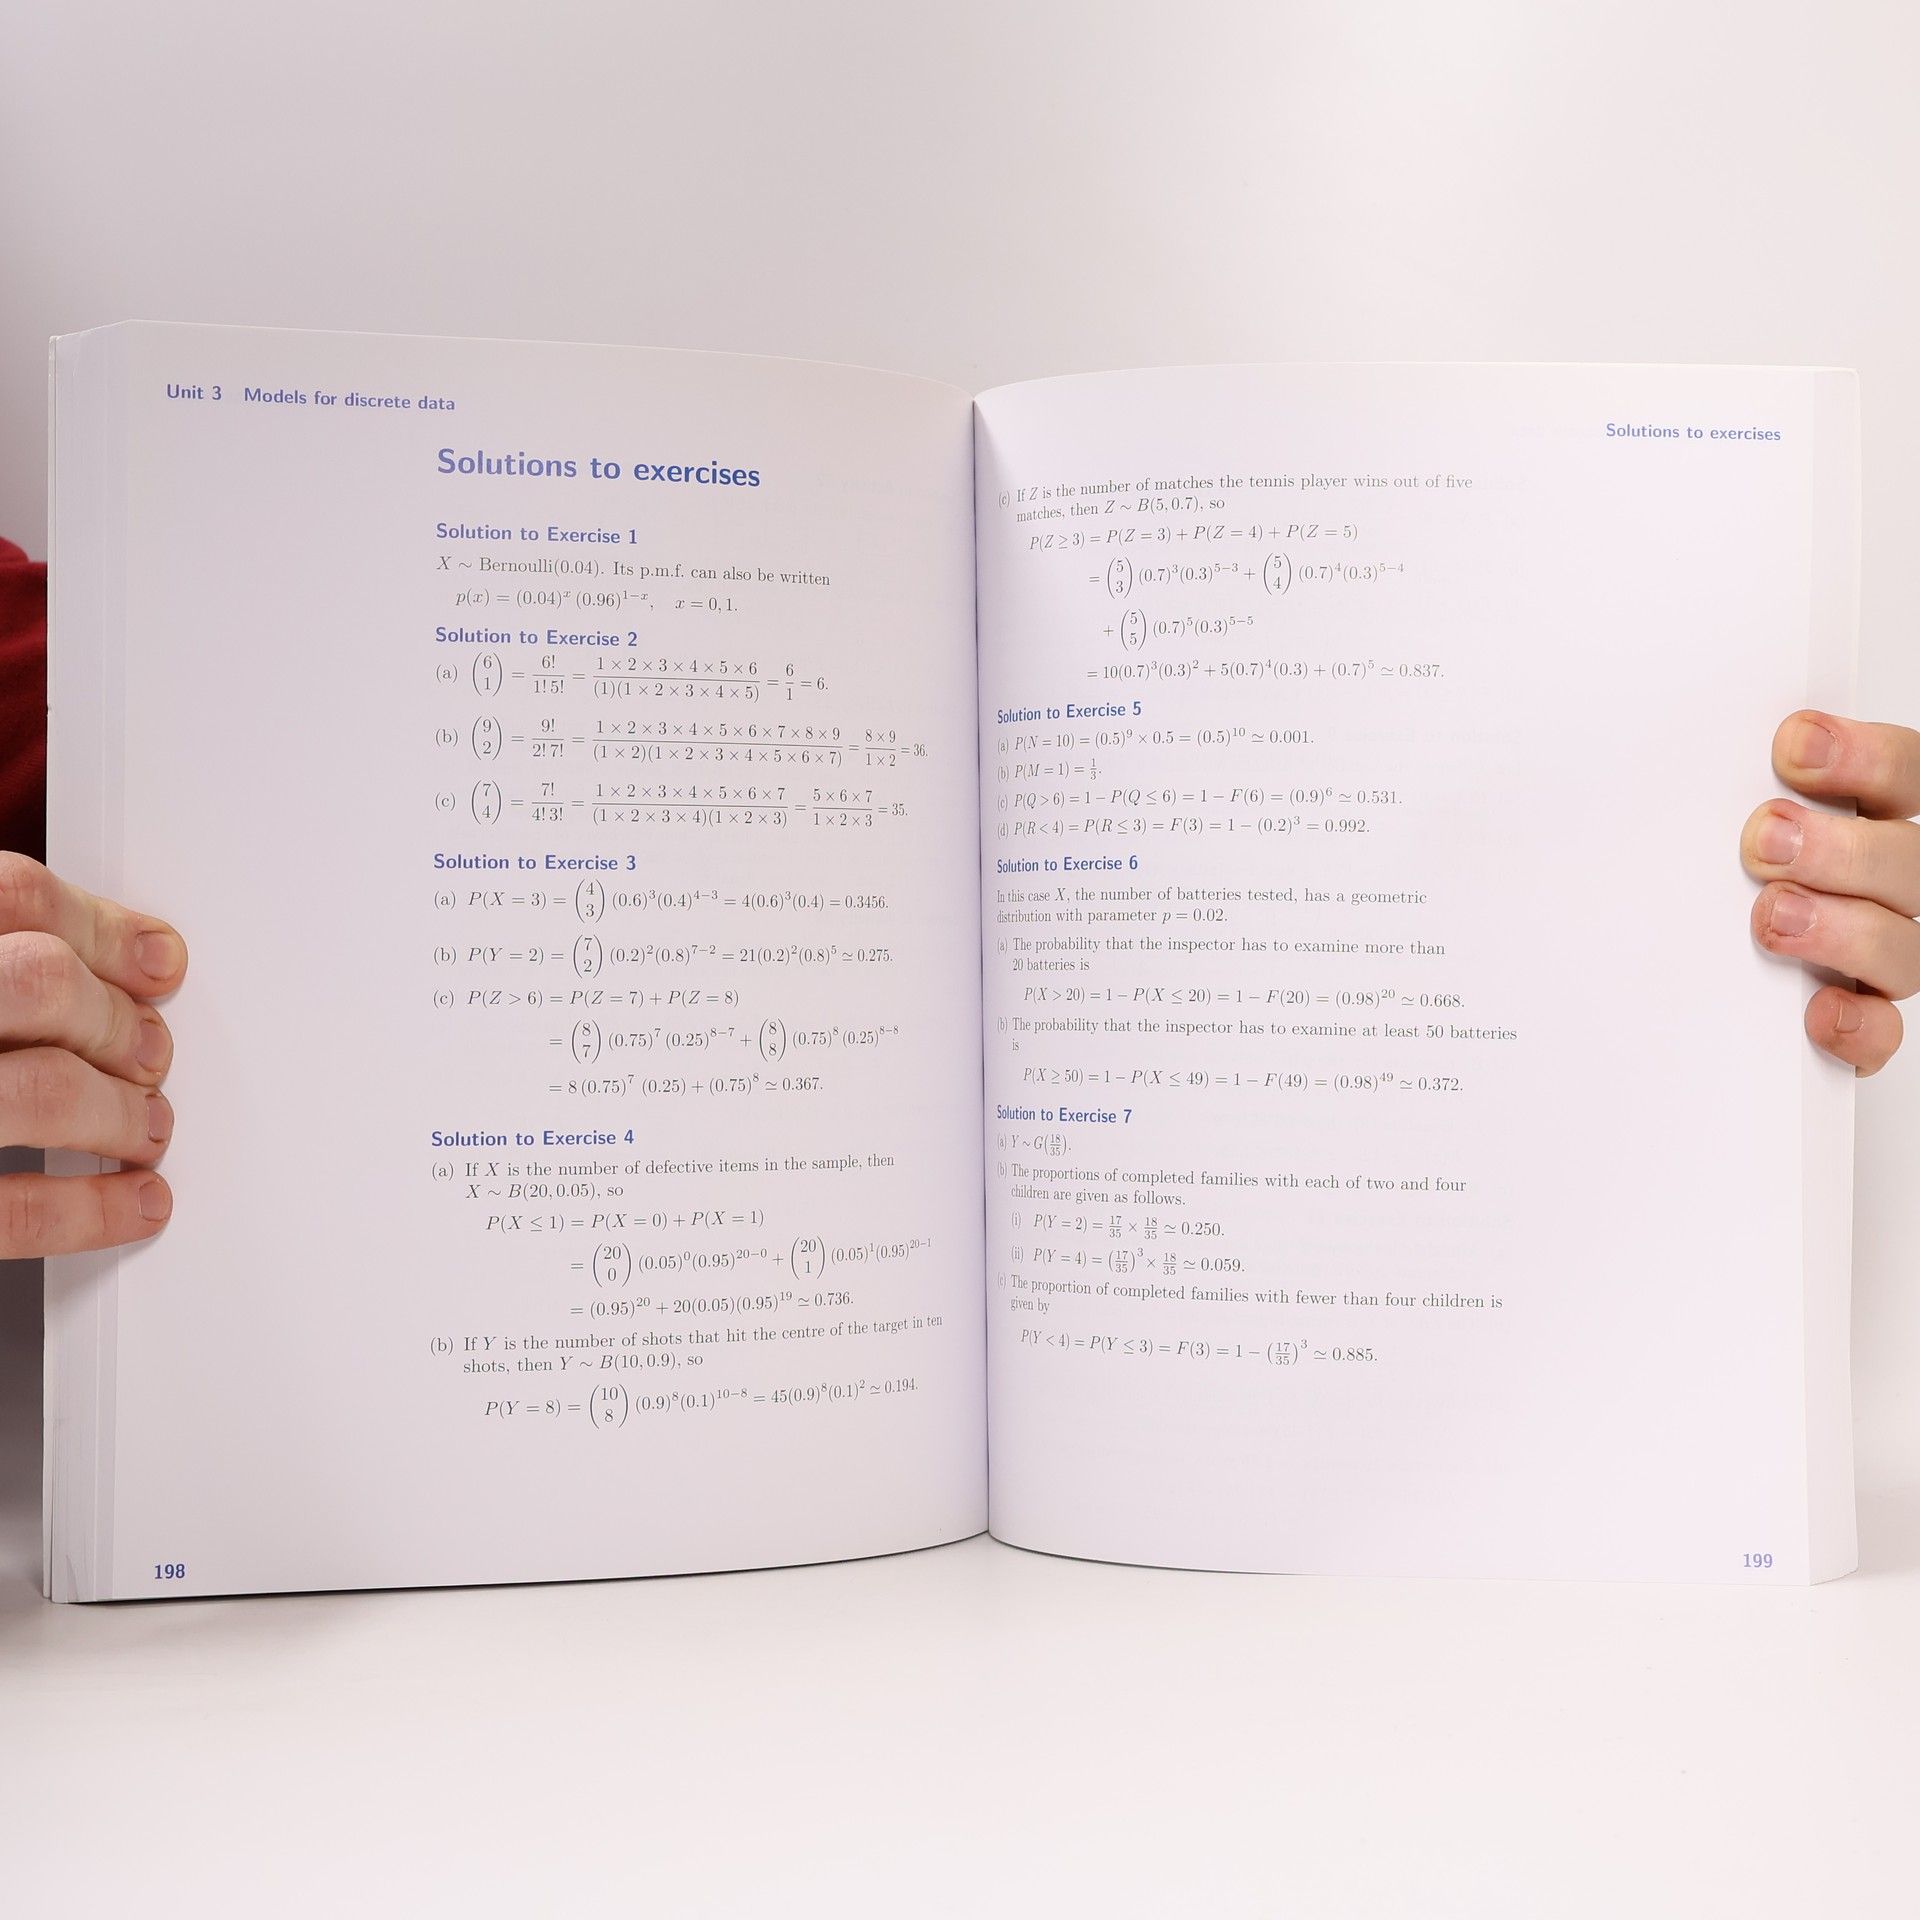 Unit 3 Models for discrete data
Solutions to exercises
Solution to Exercise 1
X ∼ Bernoulli(0.04). Its p.m.f. can also be written
p(x) = (0.04)^x (0.96)^{1−x}, x = 0, 1.
Solution to Exercise 2
(a) \binom{6}{1} = \frac{6!}{1! 5!} = \frac{1 × 2 × 3 × 4 × 5 × 6}{(1)(1 × 2 × 3 × 4 × 5)} = \frac{6}{1} = 6.
(b) \binom{9}{2} = \frac{9!}{2! 7!} = \frac{1 × 2 × 3 × 4 × 5 × 6 × 7 × 8 × 9}{(1 × 2)(1 × 2 × 3 × 4 × 5 × 6 × 7)} = \frac{8 × 9}{1 × 2} = 36.
(c) \binom{7}{4} = \frac{7!}{4! 3!} = \frac{1 × 2 × 3 × 4 × 5 × 6 × 7}{(1 × 2 × 3 × 4)(1 × 2 × 3)} = \frac{5 × 6 × 7}{1 × 2 × 3} = 35.
Solution to Exercise 3
(a) P(X = 3) = \binom{4}{3} (0.6)^3(0.4)^{4−3} = 4(0.6)^3(0.4) = 0.3456.
(b) P(Y = 2) = \binom{7}{2} (0.2)^2(0.8)^{7−2} = 21(0.2)^2(0.8)^5 ≃ 0.275.
(c) P(Z > 6) = P(Z = 7) + P(Z = 8)
= \binom{8}{7} (0.75)^7 (0.25)^{8−7} + \binom{8}{8} (0.75)^8 (0.25)^{8−8}
= 8 (0.75)^7 (0.25) + (0.75)^8 ≃ 0.367.
Solution to Exercise 4
(a) If X is the number of defective items in the sample, then
X ∼ B(20, 0.05), so
P(X ≤ 1) = P(X = 0) + P(X = 1)
= \binom{20}{0} (0.05)^0(0.95)^{20−0} + \binom{20}{1} (0.05)^1(0.95)^{20−1}
= (0.95)^{20} + 20(0.05)(0.95)^{19} ≃ 0.736.
(b) If Y is the number of shots that hit the centre of the target in ten
shots, then Y ∼ B(10, 0.9), so
P(Y = 8) = \binom{10}{8} (0.9)^8(0.1)^{10−8} = 45(0.9)^8(0.1)^2 ≃ 0.194.
198
Solutions to exercises
(c) If Z is the number of matches the tennis player wins out of five
matches, then Z ∼ B(5, 0.7), so
P(Z ≥ 3) = P(Z = 3) + P(Z = 4) + P(Z = 5)
= \binom{5}{3} (0.7)^3(0.3)^{5−3} + \binom{5}{4} (0.7)^4(0.3)^{5−4}
+ \binom{5}{5} (0.7)^5(0.3)^{5−5}
= 10(0.7)^3(0.3)^2 + 5(0.7)^4(0.3) + (0.7)^5 ≃ 0.837.
Solution to Exercise 5
(a) P(N = 10) = (0.5)^9 × 0.5 = (0.5)^{10} ≃ 0.001.
(b) P(M = 1) = \frac{1}{3}.
(c) P(Q > 6) = 1 − P(Q ≤ 6) = 1 − F(6) = (0.9)^6 ≃ 0.531.
(d) P(R < 4) = P(R ≤ 3) = F(3) = 1 − (0.2)^3 = 0.992.
Solution to Exercise 6
In this case X, the number of batteries tested, has a geometric
distribution with parameter p = 0.02.
(a) The probability that the inspector has to examine more than
20 batteries is
P(X > 20) = 1 − P(X ≤ 20) = 1 − F(20) = (0.98)^{20} ≃ 0.668.
(b) The probability that the inspector has to examine at least 50 batteries
is
P(X ≥ 50) = 1 − P(X ≤ 49) = 1 − F(49) = (0.98)^{49} ≃ 0.372.
Solution to Exercise 7
(a) Y ∼ G(\frac{18}{35}).
(b) The proportions of completed families with each of two and four
children are given as follows.
(i) P(Y = 2) = \frac{17}{35} × \frac{18}{35} ≃ 0.250.
(ii) P(Y = 4) = (\frac{17}{35})^3 × \frac{18}{35} ≃ 0.059.
(c) The proportion of completed families with fewer than four children is
given by
P(Y < 4) = P(Y ≤ 3) = F(3) = 1 − (\frac{17}{35})^3 ≃ 0.885.
199